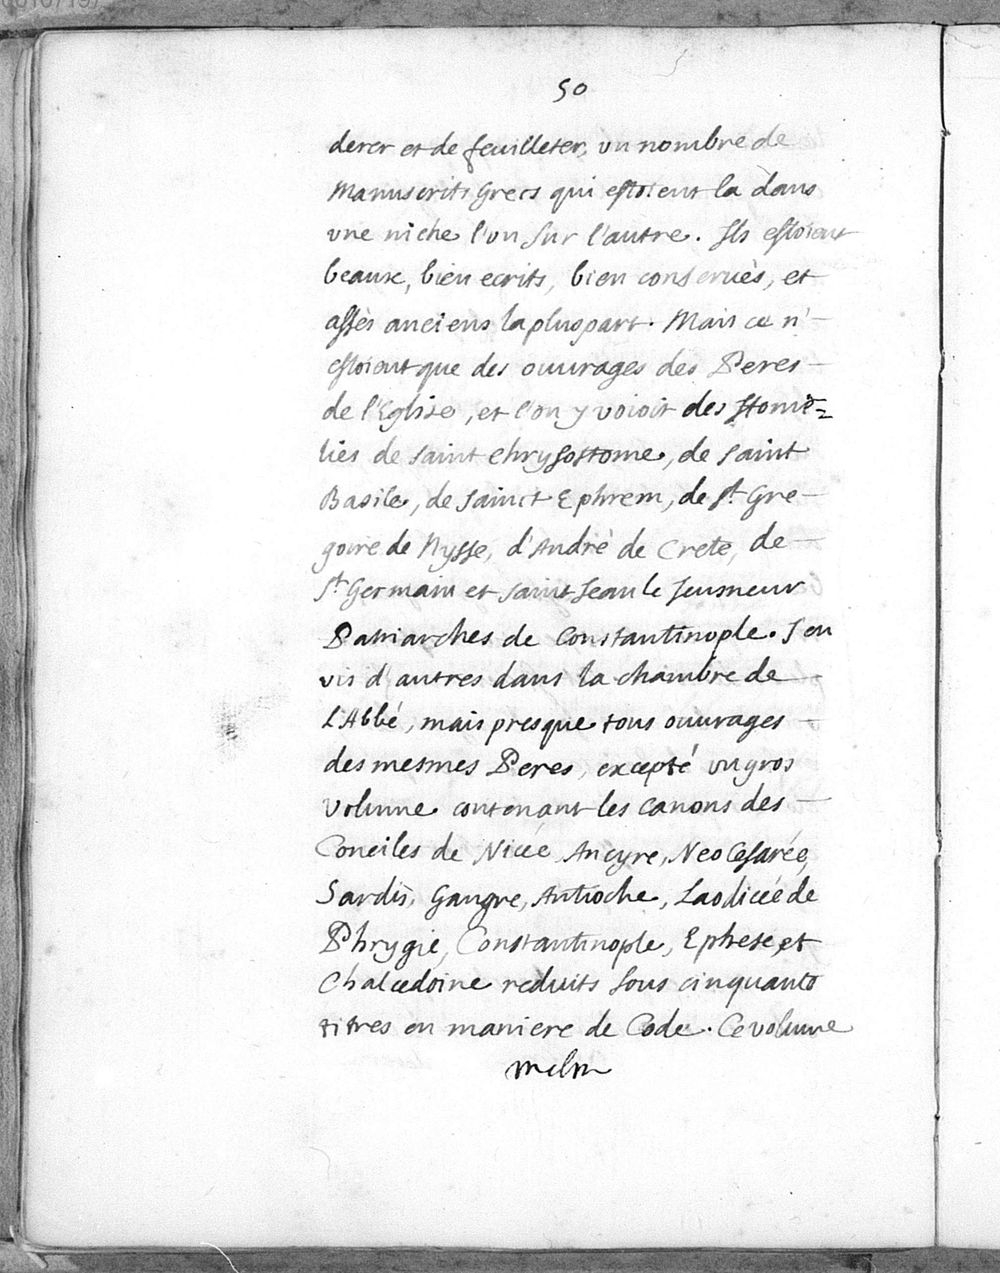 50
derer et de feuilleter, un nombre de
Manuscrits Grecs qui estoient la dans
une niche l'un sur l'autre. Ils estoient
beaux, bien ecrits, bien conservès, et
assès anciens la pluspart. Mais ce n'
estoient que des ouvrages des Peres
de l'Eglise, et l'on y voioit des Home=
lies de saint Chrysostome, de saint
Basile, de sainct Ephrem, de St Gre-
goire de Nysse, d'Andrè de Crete, de
St Germain et saint Jean le Jeusneur
Patriarches de Constantinople. J'en
vis d'autres dans la chambre de
L'Abbé, mais presque tous ouvrages
des mesmes Peres, excepté un gros
volume contenant les canons des
Conciles de Nicée, Ancyre, Neocesarée,
Sardis, Gangre, Antioche, Laodicée de
Phrygie, Constantinople, Ephese, et
Chalcedoine reduits sous cinquante
titres en maniere de Code. Ce volume